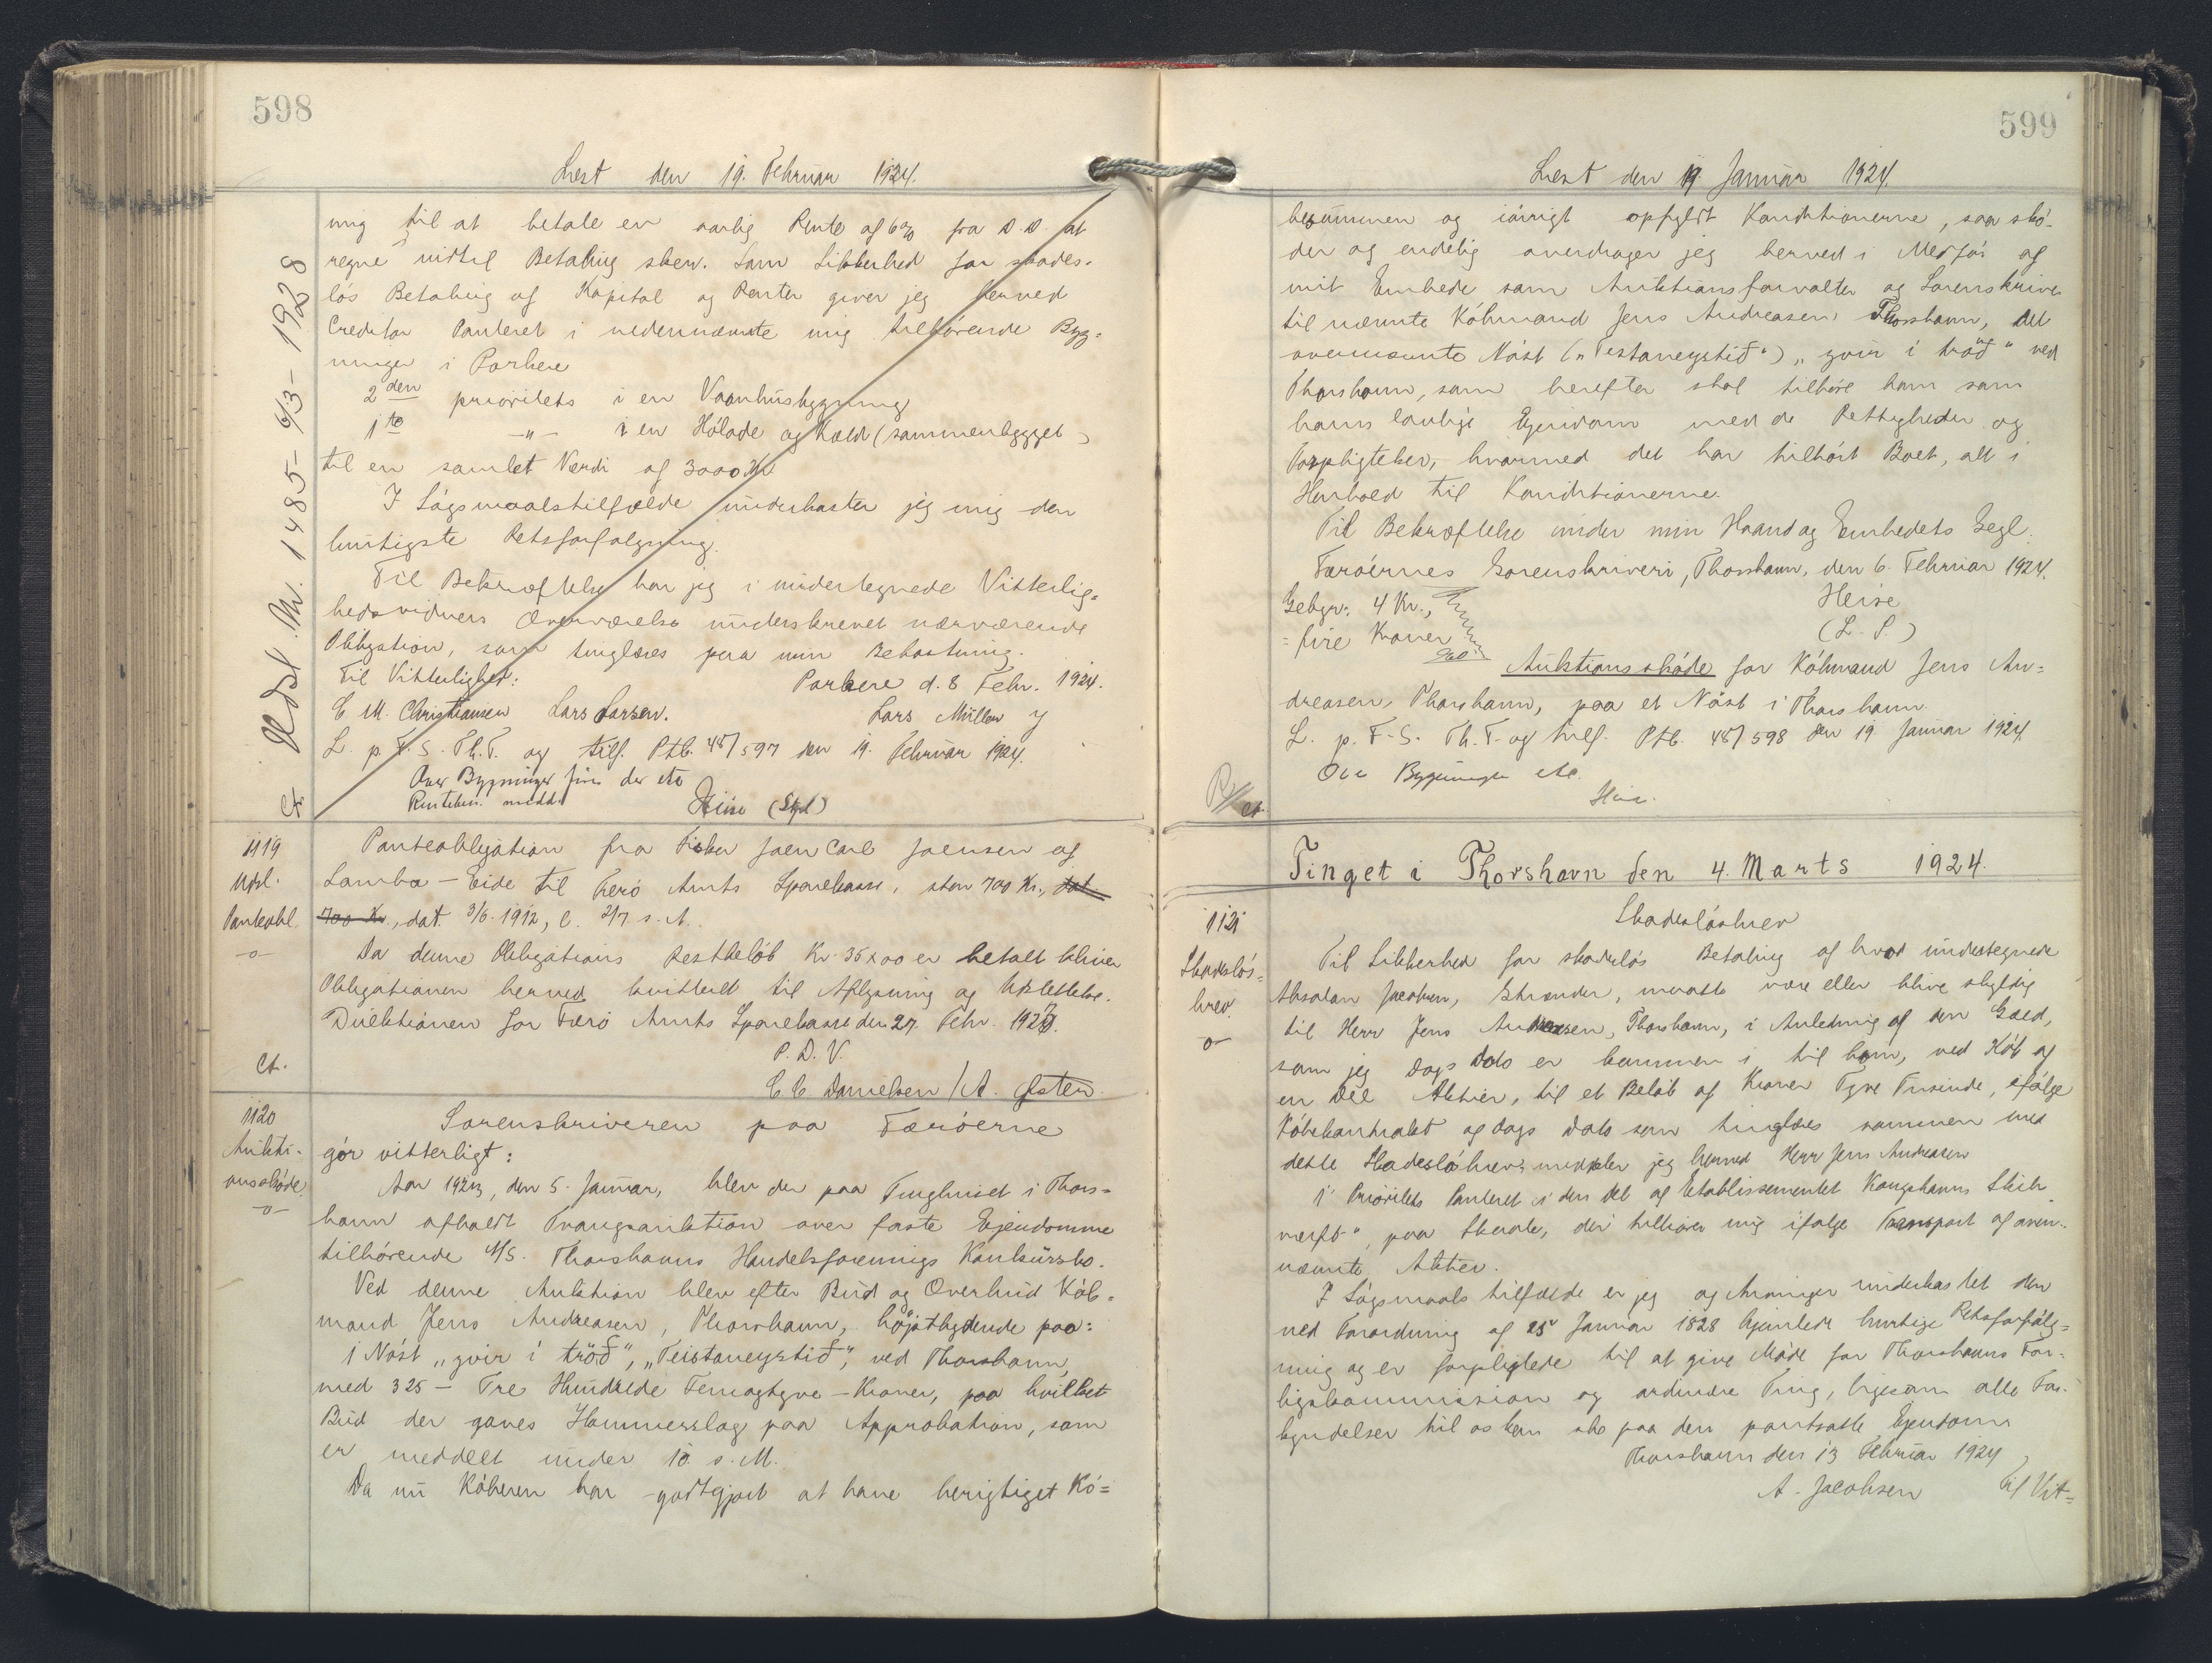 598
Læst den 19. Februar 1924.
mig til at betale en aarlig Rente af 6% fra D.D. at
regne indtil Betaling sker. Som Sikkerhed for skades-
løs Betaling af Kapital og Renter giver jeg herved
Creditor Panteret i nedennævnte mig tilhørende Byg-
ninger i Porkere
2den prioritets i en Vaanhusbygning
1te -"- i en Hølade og Kæld (sammenbygget)
til en samlet Værdi af 3000 Kr
I Søgsmaalstilfælde underkaster jeg mig den
hurtigste Retsforfølgning.
Til Bekræftelse har jeg i undertegnede Vitterlig-
hedsvidners Overværelse underskrevet nærværende
Obligation, som tinglæses paa min Bekostning.
Til Vitterlighed: Porkere d. 8 Febr. 1924.
C M. Christiansen Lars Larsen. Lars Müller
L. p. F. S. Th. T. og tilf. Ptb. 48/597 den 19. Februar 1924.
Over Bygninger fins der etc
Heise (Sgd)
Udsl. Nr. 1485- 6/3- 1928
Ct.
1119
Udsl.
Panteobl.
-o-
Panteobligation fra Fisker Joen Carl Joensen af
Lamba - Eide til Færø Amts Sparekasse, stor 700 Kr., dat.
700 Kr., dat. 3/6. 1912, l. 2/7 s. A.
Da denne Obligations Restbeløb Kr. 35x00 er betalt bliver
Obligationen herved kvitteret til Aflysning og Udslettelse.
Direktionen for Færø Amts Sparekasse den 27. Febr. 1923.
P. D. V.
C C Danielsen / A.
Ct.
1120
Aukti-
onsskøde
-o-
Sorenskriveren paa Færøerne
gør vitterligt:
Aar 1923, den 5. Januar, blev der paa Tinghuset i Thors-
havn afholdt Tvangsauktion over faste Ejendomme
tilhørende A/S. Thorshavns Handelsforenings Konkursbo.
Ved denne Auktion blev efter Bud og Overbud Køb-
mand Jens Andreasen, Thorshavn, højstbydende paa:
1 Nøst „yvir í trøð", „Teistaneystið", ved Thorshavn,
med 325 - Tre Hundrede Femogtyve - Kroner, paa hvilket
Bud der gaves Hammerslag paa Approbation, som
er meddelt under 10. s. M.
Da nu Køberen har godtgjort at have berigtiget Kø-
599
Læst den 19. Januar 1924.
besummen og iøvrigt opfyldt Konditionerne, saa skø-
der og endelig overdrager jeg herved i Medfør af
mit Embede som Auktionsforvalter og Sorenskriver
til nævnte Købmand Jens Andreasen, Thorshavn, det
ovennævnte Nøst („Teistaneystið") „yvir í trøð" ved
Thorshavn, som herefter skal tilhøre ham som
hans lovlige Ejendom med de Rettigheder og
Forpligtelser, hvormed det har tilhørt Boet, alt i
Henhold til Konditionerne.
Til Bekræftelse under min Haand og Embedets Segl.
Færøernes Sorenskriveri, Thorshavn, den 6. Februar 1924.
Gebyr: 4 Kr., Heise
= fire Kroner (L. S.)
Auktionsskøde for Købmand Jens An-
dreasen, Thorshavn, paa et Nøst i Thorshavn.
L. p. F. S. Th. T. og tilf. Ptb. 48/598 den 19 Januar 1924
Ove Bygninger etc.
Heise.
Ct.
Tinget i Thorshavn den 4. Marts 1924.
1121
Skadesløs-
brev.
-o-
Skadesløsbrev
Til Sikkerhed for skadesløs Betaling af hvad undertegnede
Absalon Jacobsen, Strænder, maatte være eller blive skyldig
til Herr Jens Andreasen, Thorshavn, i Anledning af den Gæld,
som jeg Dags Dato er kommen i til ham, ved Køb af
en Del Aktier, til et Beløb af Kroner Tyve Tusinde, ifølge
Købekontrakt af dags Dato som tinglæses sammen med
dette Skadesløsbrev, meddeler jeg herved Herr Jens Andreasen
1' Prioritets Panteret i den Del af Etablissementet Kongshavns Skib
værft", paa Skaale, der tilhører mig ifølge Transport af oven-
nævnte Aktier.
I Søgsmaals tilfælde er jeg og Arvinger underkastet den
ved Forordning af 25' Januar 1828 hjemlede hurtige Retsforfølg-
ning og er forpligtede til at give Møde for Thorshavns For-
ligskommission og ordinære Ting, ligesom alle For-
kyndelser til os kan ske paa den pantsatte Ejendom
Thorshavn den 13 Februar 1924
A. Jacobsen Til Vit-